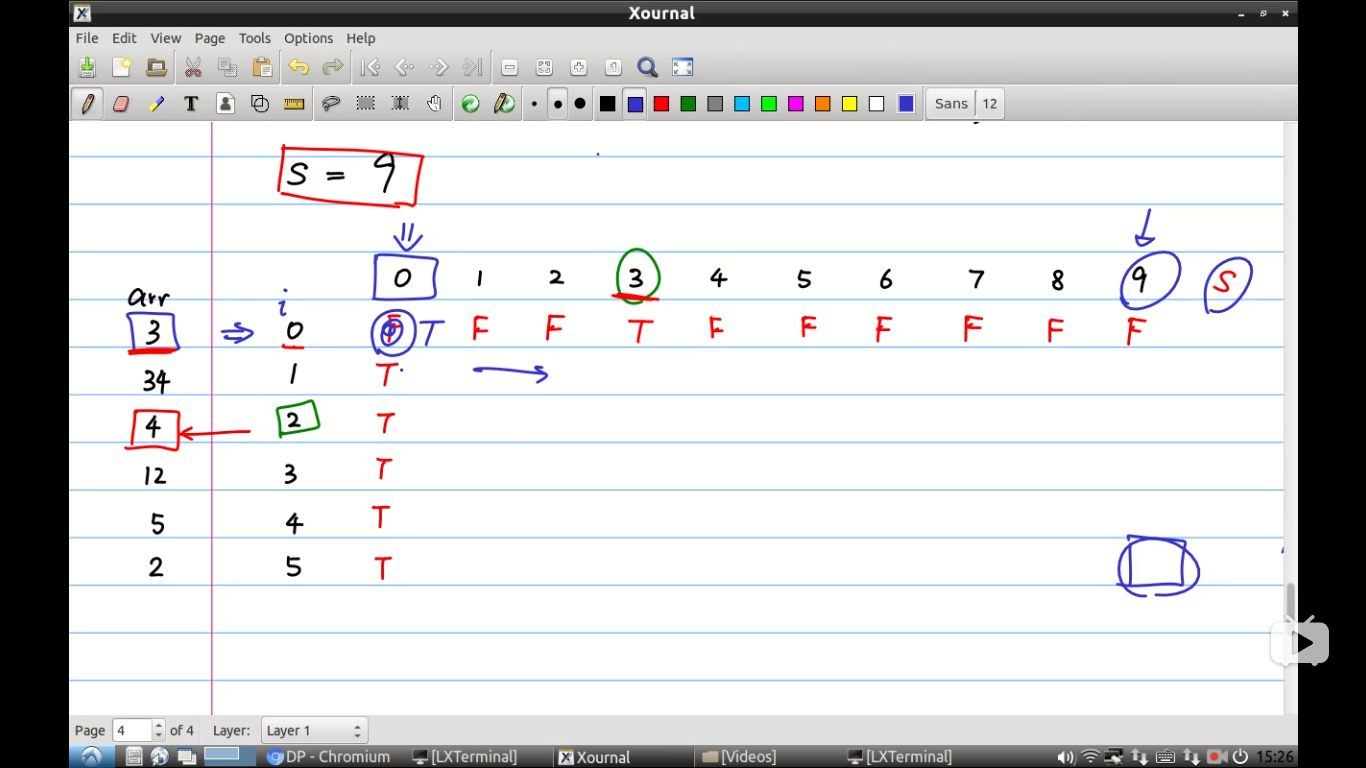 Xournal
File Edit View Page Tools Options Help
T Sans 12
S = 9
0 1 2 3 4 5 6 7 8 9 S
arr i
3 0 T F F T F F F F F F
34 1 T
4 2 T
12 3 T
5 4 T
2 5 T
Page 4 of 4 Layer: Layer 1
DP - Chromium [LXTerminal] Xournal [Videos] [LXTerminal] 15:26